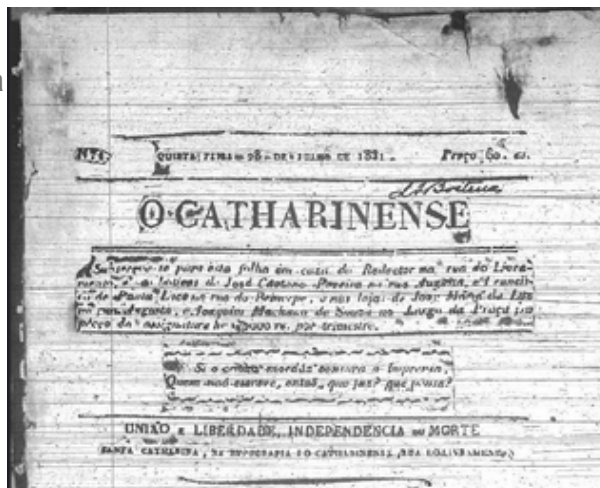 QUINTA FEIRA 28 DE JULHO DE 1831. Preço 60 rs.
O CATHARINENSE
Subscreve-se para esta folha em caza do Redactor na rua do Livra-
mento, e as boticas de José Caetano Pereira na rua Augusta, e
de Paula na rua do Principe, e nas lojas de Joze Maria da Luz
na rua Augusta, e Joaquim Machado de Souza no Largo da Praça
preço da assignatura he rs. por trimestre.
Si o exordia censura a Imprensa,
Quem naõ escreve, entaõ, que faz? que pensa?
UNIÃO E LIBERDADE, INDEPENDENCIA OU MORTE
SANTA CATHARINA, NA TYPOGRAFIA DO CATHARINENSE, RUA DO LIVRAMENTO